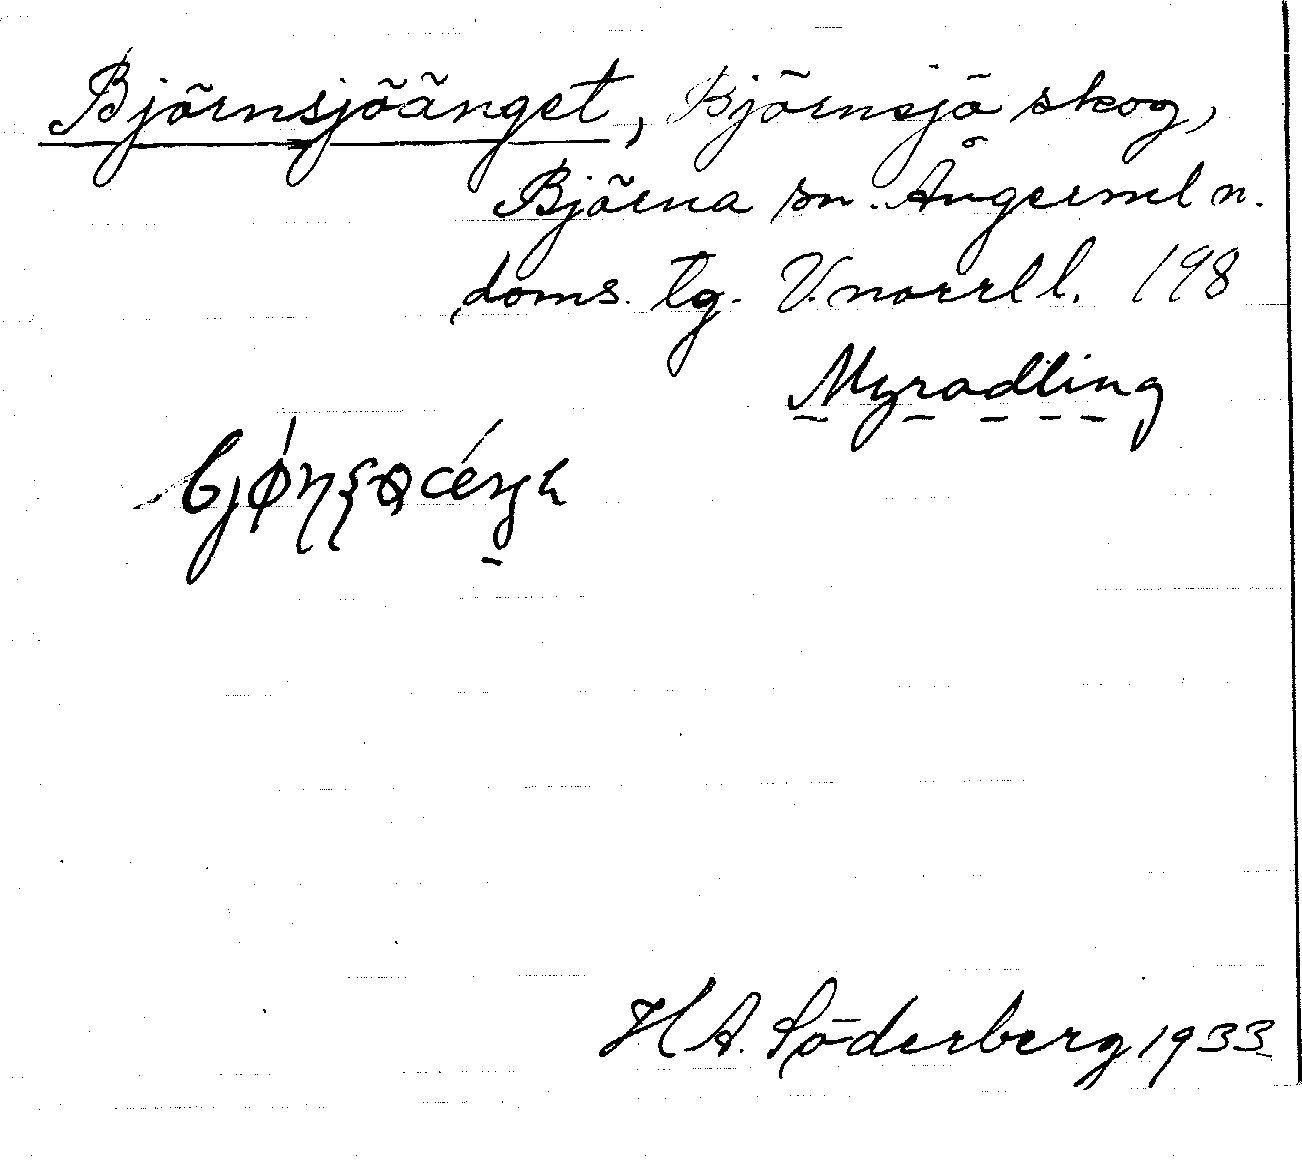 Björnsjöänget, Björnsjö skog,
Björna sn. Ångerml n.
doms. tg. V.norrl l. 198
Myrodling
H A. Söderberg 1933